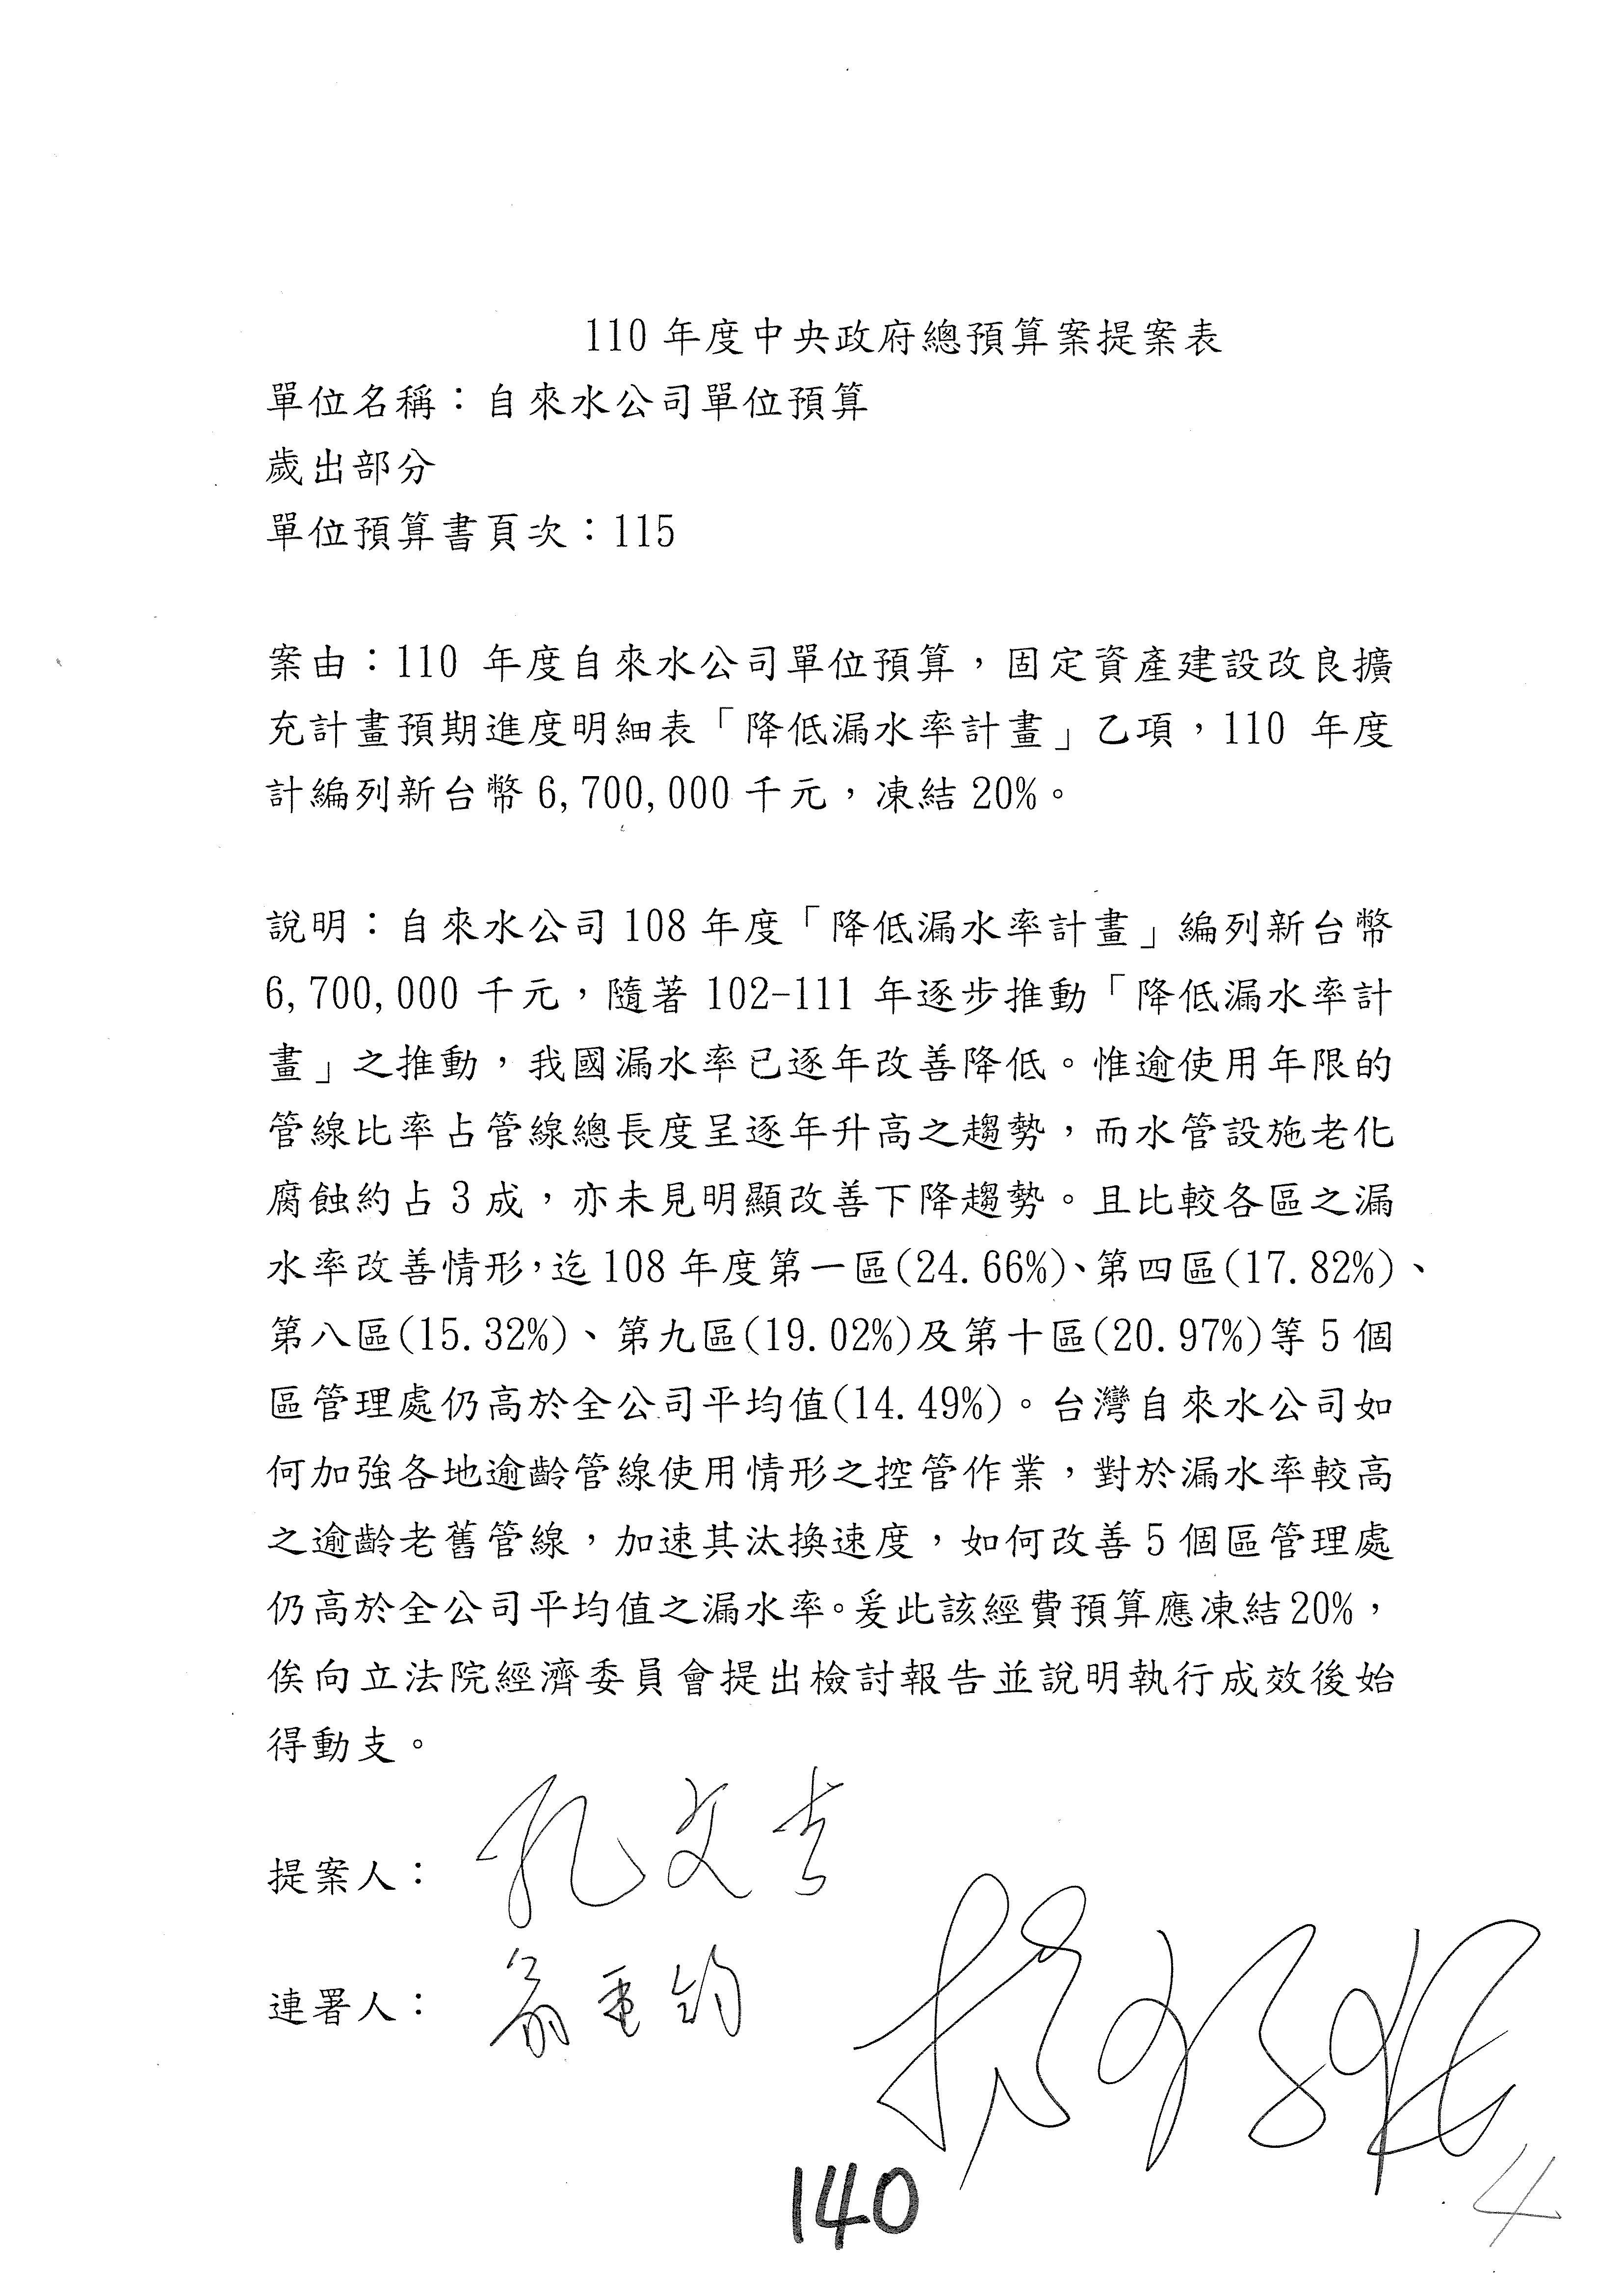 110 年度中央政府總預算案提案表
單位名稱：自來水公司單位預算
歲出部分
單位預算書頁次：115
案由：110 年度自來水公司單位預算，固定資產建設改良擴
充計畫預期進度明細表「降低漏水率計畫」乙項，110 年度
計編列新台幣 6,700,000 千元，凍結 20%。
說明：自來水公司 108 年度「降低漏水率計畫」編列新台幣
6,700,000 千元，隨著 102-111 年逐步推動「降低漏水率計
畫」之推動，我國漏水率已逐年改善降低。惟逾使用年限的
管線比率占管線總長度呈逐年升高之趨勢，而水管設施老化
腐蝕約占 3 成，亦未見明顯改善下降趨勢。且比較各區之漏
水率改善情形，迄 108 年度第一區(24.66%)、第四區(17.82%)、
第八區(15.32%)、第九區(19.02%)及第十區(20.97%)等 5 個
區管理處仍高於全公司平均值(14.49%)。台灣自來水公司如
何加強各地逾齡管線使用情形之控管作業，對於漏水率較高
之逾齡老舊管線，加速其汰換速度，如何改善 5 個區管理處
仍高於全公司平均值之漏水率。爰此該經費預算應凍結 20%，
俟向立法院經濟委員會提出檢討報告並說明執行成效後始
得動支。
提案人：孔文吉
連署人：翁重鈞
140
4